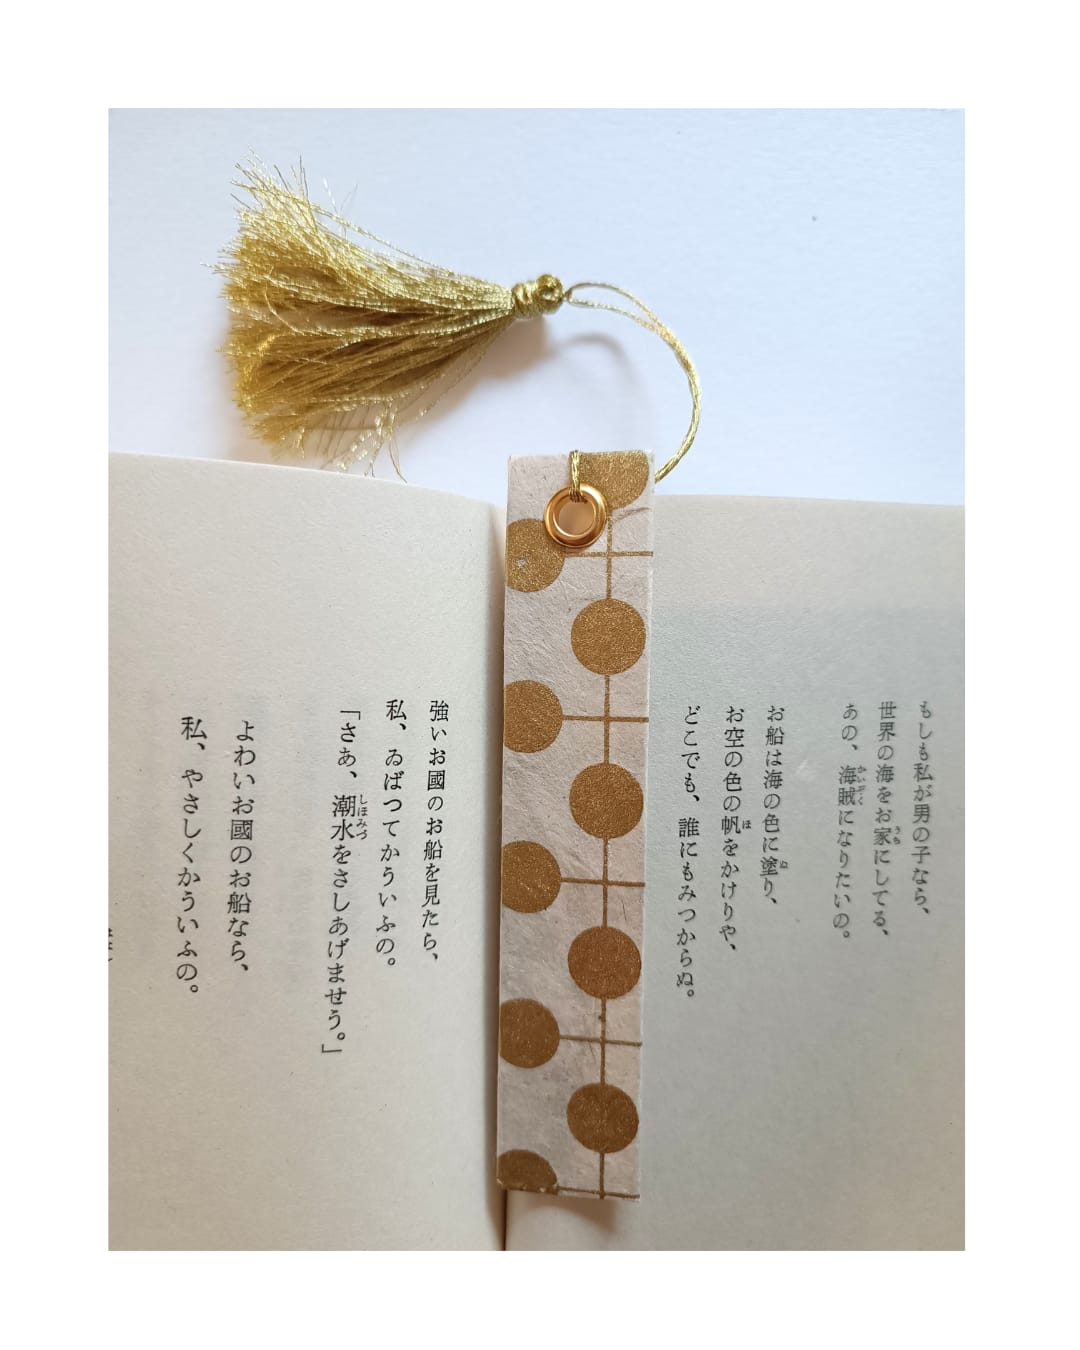 もしも私が男の子なら、
世界の海をお家にしてる、
うち
あの、海賊になりたいの。
かいぞく
お船は海の色に塗り、
ぬ
お空の色の帆をかけりや、
ほ
どこでも、誰にもみつからぬ。
強いお國のお船を見たら、
私、ゐばつてかういふの。
「さあ、潮水をさしあげませう。」
しほみづ
よわいお國のお船なら、
私、やさしくかういふの。